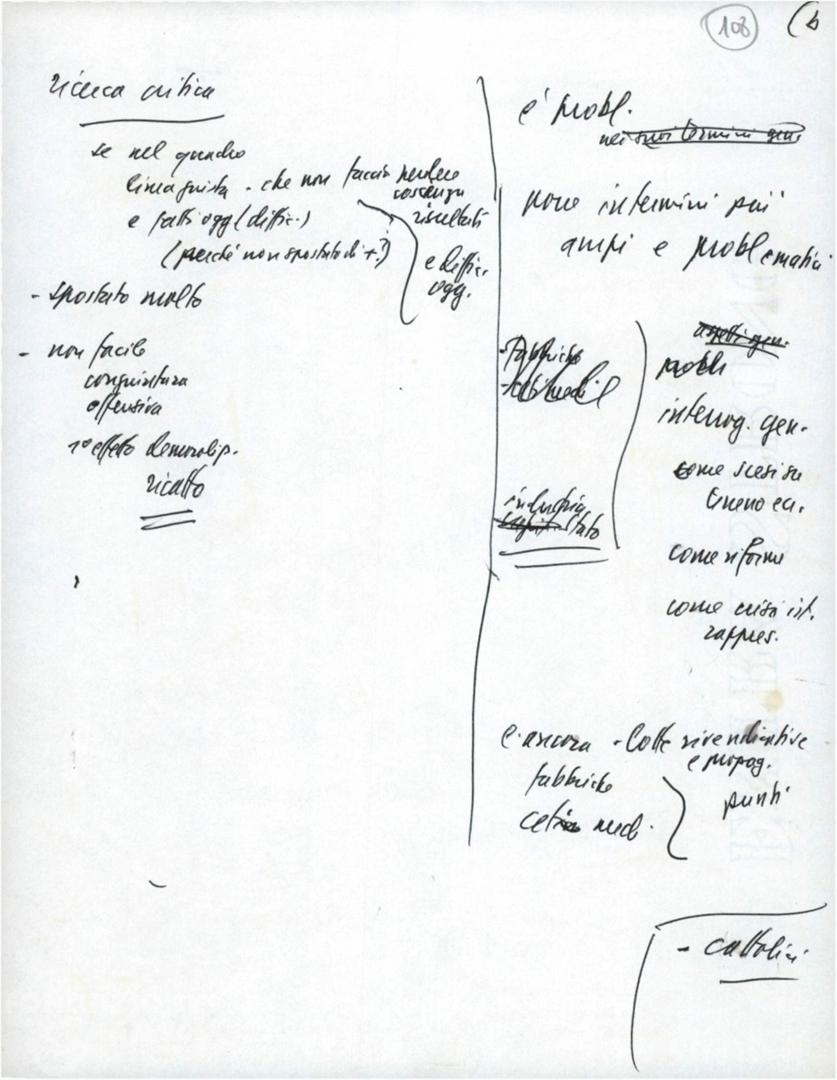 108 (b
ricerca critica
se nel quadro
linea giusta - che non faccia perdere
coscienza
risultati
e fatti ogg (diffic.)
(perché non spostato di +?)
e diffic.
ogg.
- spostato molto
- non facile
congiuntura
offensiva
1° effetto demoralip.
ricatto
è probl.
nei suoi termini gen.
pone in termini più
ampi e problematici
- fabbriche
- ceti medi
industria
Stato
aspetti gen.
probl
interrog. gen.
come scesi su
terreno ec.
come riforme
come crisi ist.
rappres.
e ancora - lotte rivendicative
e propag.
fabbriche
ceti med.
punti
- cattolici